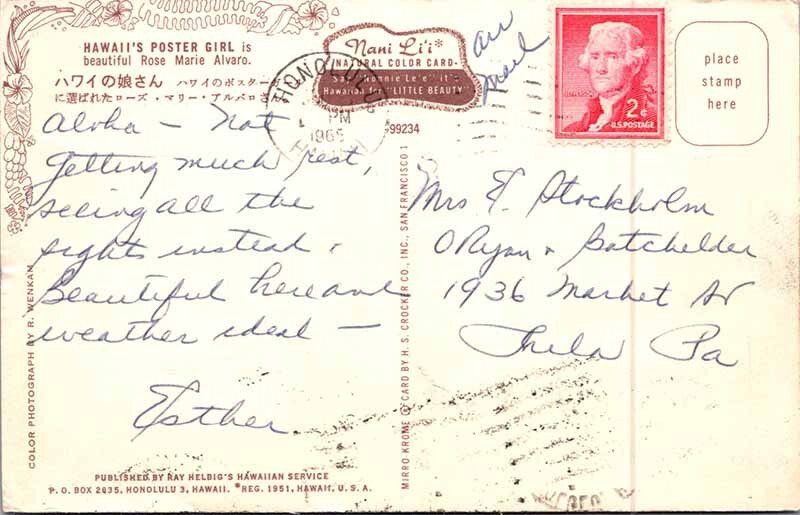 HAWAII'S POSTER GIRL is
beautiful Rose Marie Alvaro.
ハワイの娘さん ハワイのポスター
に選ばれたローズ・マリー・アルバロ
Nani Li'i*
NATURAL COLOR CARD
Say "Nonnie Le'e" it's
Hawaiian for "LITTLE BEAUTY"
HONOLULU
PM
1965
99234
air
mail
2¢
U.S. POSTAGE
place
stamp
here
Aloha – Not
getting much rest,
seeing all the
sights instead.
Beautiful here and
weather ideal –
Esther
Mrs E. Stockholm
O'Ryan & Batchelder
1936 Market St
Phila Pa
COLOR PHOTOGRAPH BY R. WENKAM
MIRRO KROME ® CARD BY H. S. CROCKER CO., INC., SAN FRANCISCO 1
PUBLISHED BY RAY HELBIG'S HAWAIIAN SERVICE
P. O. BOX 2835, HONOLULU 3, HAWAII. *REG. 1951, HAWAII, U. S. A.